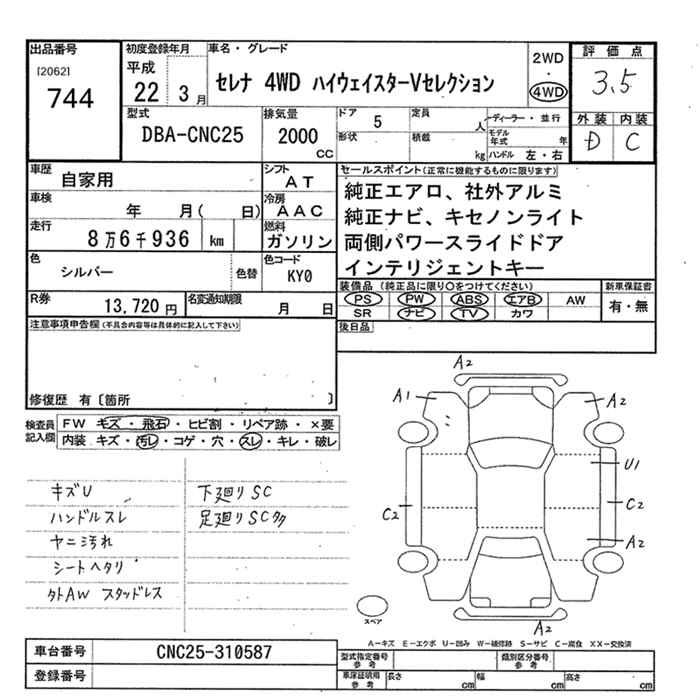 出品番号
[2062]
744
初度登録年月
平成
22 3月
車名・グレード
セレナ 4WD ハイウェイスターVセレクション
2WD
・
4WD
評価点
3.5
外装 内装
D C
型式
DBA-CNC25
排気量
2000
CC
ドア 5
形状
定員
人
積載
kg
ディーラー・並行
モデル年式 年
ハンドル 左・右
車歴
自家用
シフト
AT
車検
年 月( 日)
冷房
AAC
走行
8万6千936 km
燃料
ガソリン
色
シルバー
色替
色コード
KY0
R券
13,720円
名変通知期限
月 日
セールスポイント(正常に機能するものに限ります)
純正エアロ、社外アルミ
純正ナビ、キセノンライト
両側パワースライドドア
インテリジェントキー
装備品(純正品に限り○をつけてください)
PS PW ABS エアB AW
SR ナビ TV カワ
新車保証書
有・無
後日品
注意事項申告欄(不具合内容等は具体的に記入して下さい)
修復歴 有〔箇所 〕
検査員記入欄
FW キズ・飛石・ヒビ割・リペア跡・×要
内装 キズ・汚レ・コゲ・穴・スレ・キレ・破レ
キズU
ハンドルスレ
ヤニ汚れ
シートヘタリ
外AW スタッドレス
下廻りSC
足廻りSC多
A2
A1
A2
U1
C2
C2
A2
A2
スペア
A-キズ E-エクボ U-凹み W-補修跡 S-サビ C-腐食 XX-交換済
車台番号
CNC25-310587
登録番号
型式指定番号
参考
類別区分番号
参考
車庫証明用
参考
長さ cm
幅 cm
高さ cm